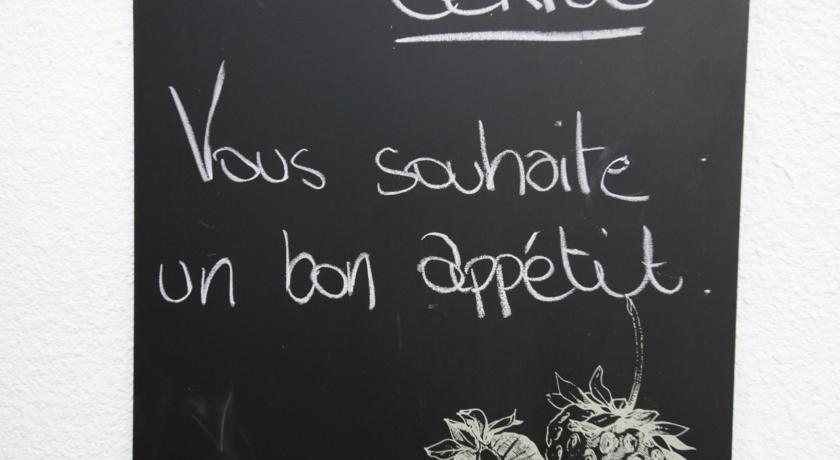 Vous souhaite
un bon appétit.